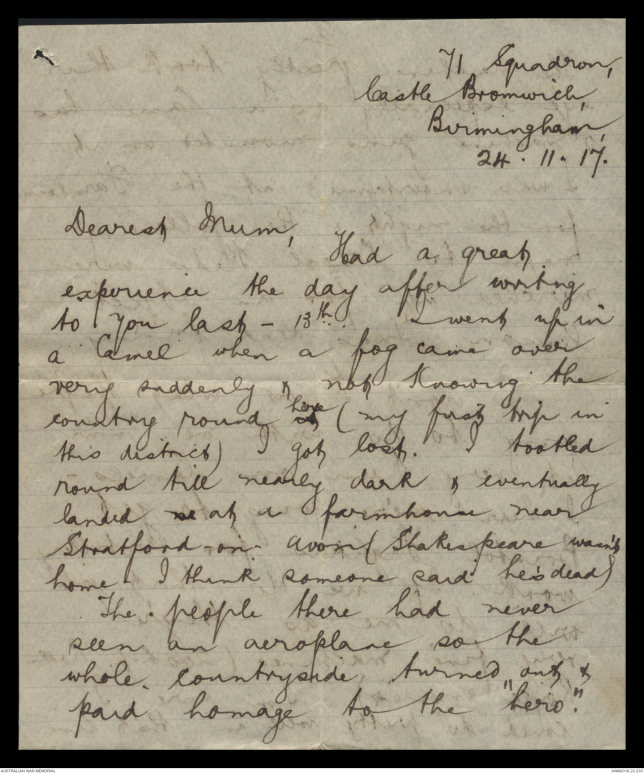 71 Squadron,
Castle Bromwich,
Birmingham,
24.11.17.
Dearest Mum,
Had a great
experience the day after writing
to you last – 13th. I went up in
a Camel when a fog came over
very suddenly & not knowing the
country round here (my first trip in
this district) I got lost. I tootled
round till nearly dark & eventually
landed at a farmhouse near
Stratford-on-Avon (Shakespeare wasn't
home I think someone said he's dead)
The people there had never
seen an aeroplane so the
whole countryside turned out &
paid homage to the "hero".
AUSTRALIAN WAR MEMORIAL